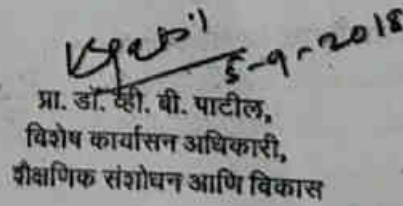 ६-९-२०१८
प्रा. डॉ. व्ही. बी. पाटील,
विशेष कार्यासन अधिकारी,
शैक्षणिक संशोधन आणि विकास